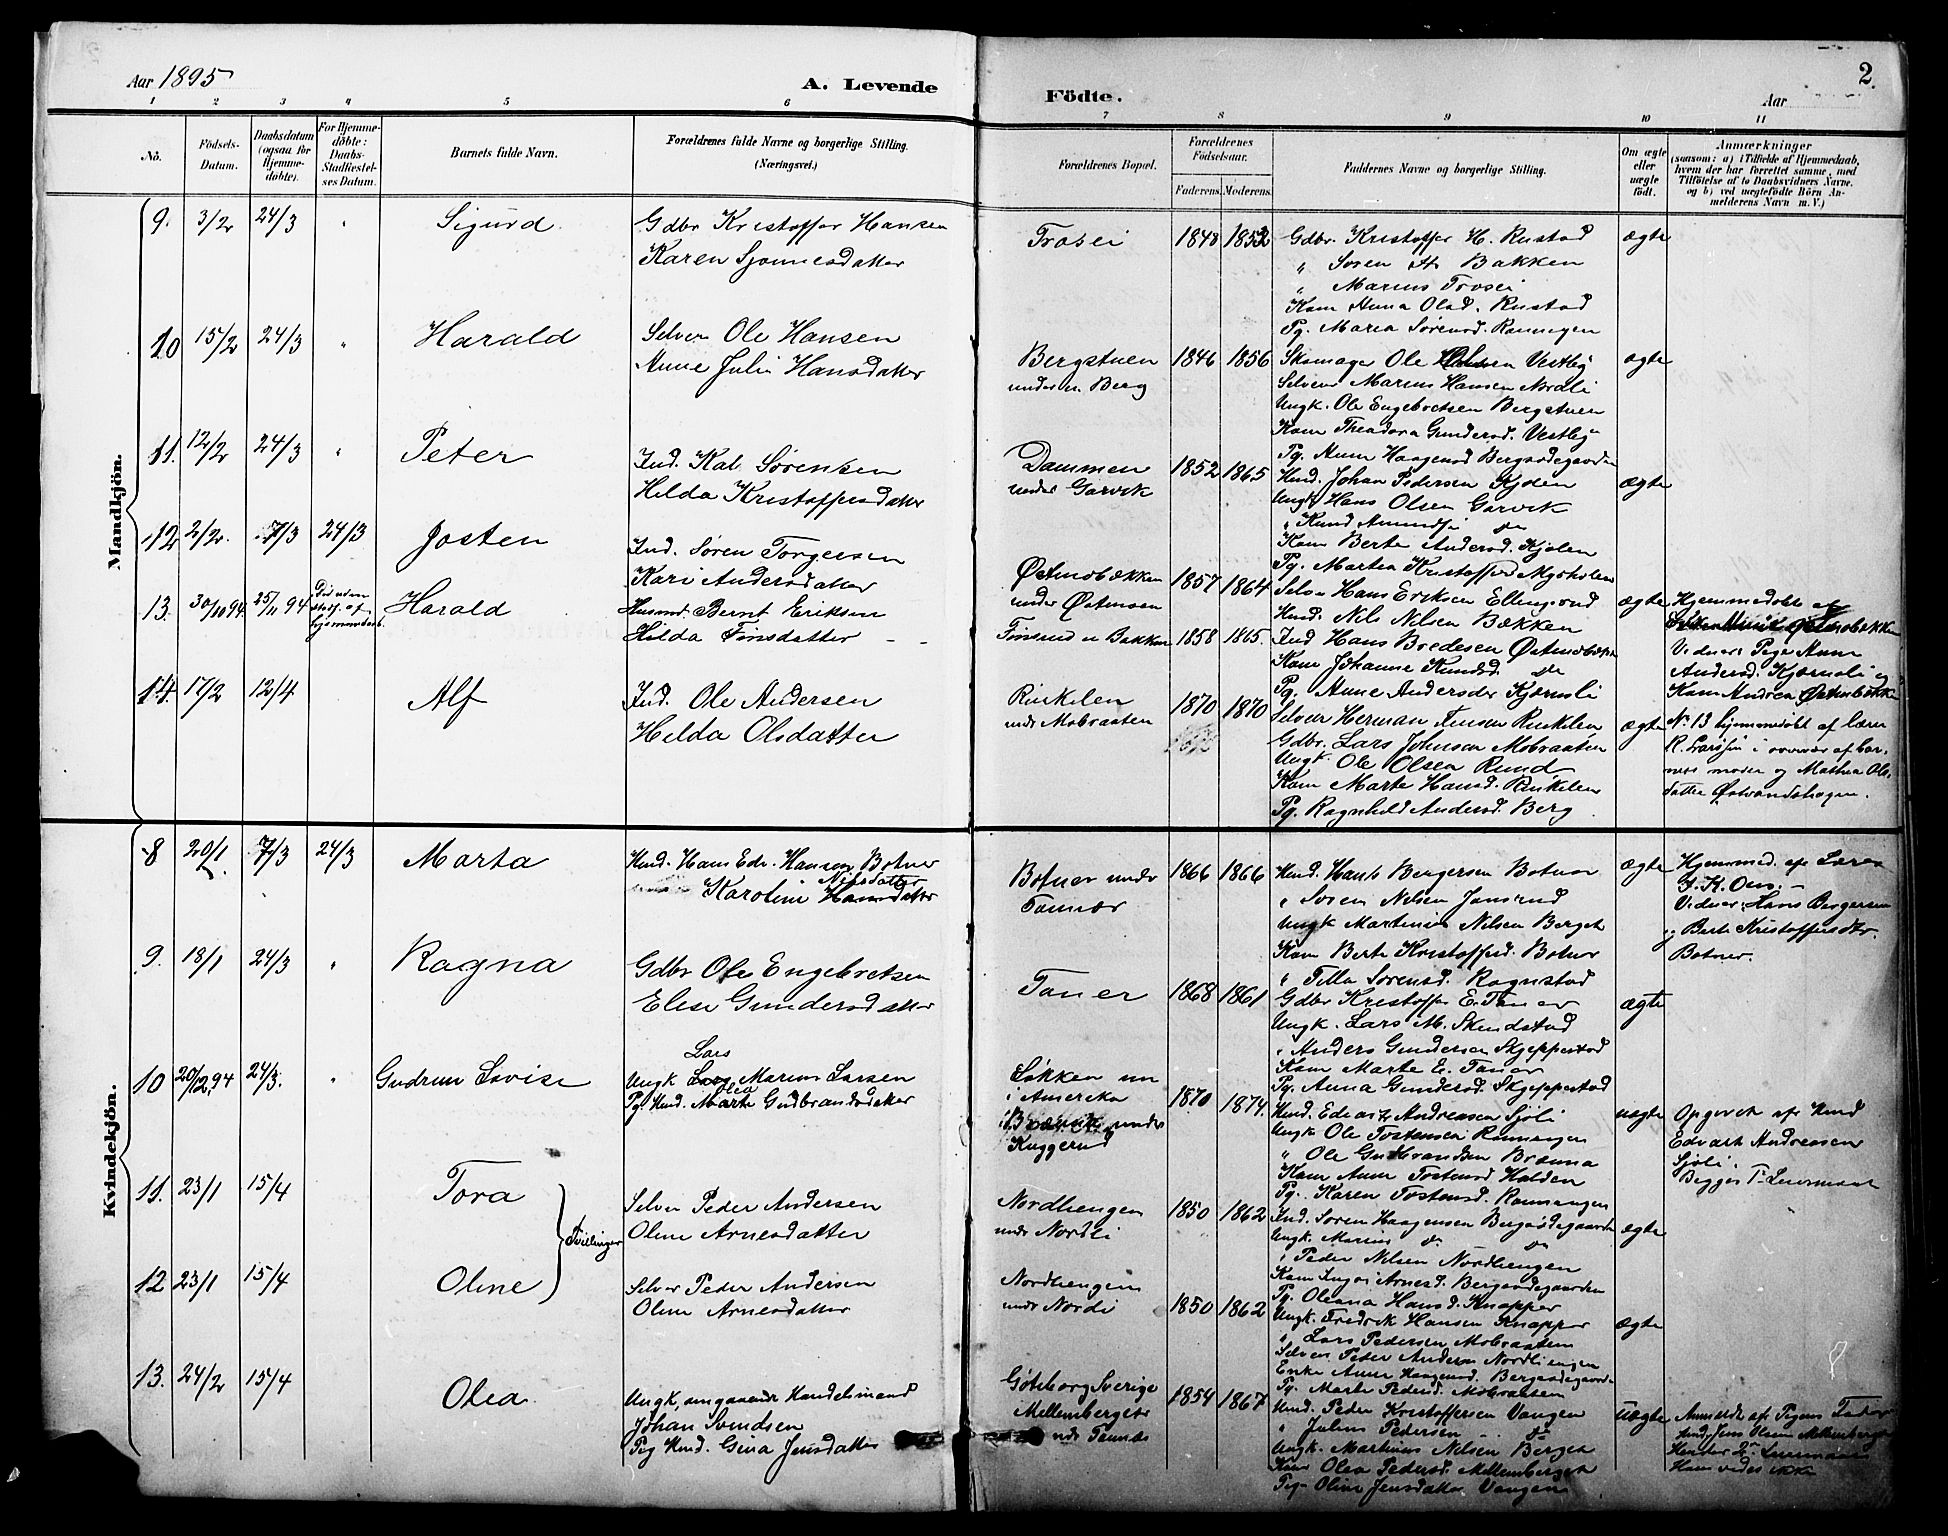 Aar 1895
A. Levende
Födte.
Aar
2
1 2 3 4 5 6 7 8 9 10 11
No.
Födsels-
Datum.
Daabsdatum
(ogsaa for
Hjemme-
döbte).
For Hjemme-
döbte:
Daabs-
Stadfæstel-
ses Datum.
Barnets fulde Navn.
Forældrenes fulde Navne og borgerlige Stilling.
(Næringsvei.)
Forældrenes Bopæl.
Forældrenes
Födselsaar.
Faderens. Moderens.
Faddernes Navne og borgerlige Stilling.
Om ægte
eller
uægte
födt.
Anmærkninger
(saasom: a) i Tilfælde af Hjemmedaab,
hvem der har forrettet samme, med
Tilföielse af to Daabsvidners Navne,
og b) ved uegtefödte Börn An-
melderens Navn m. V.)
Mandkjön.
9. 3/2 24/3 " Sigurd
Gdbr Kristoffer Hansen
Karen Sjønnesdatter
Trosei 1848 1852
Gdbr. Kristoffer H. Rustad
" Søren H. Bakken
" Marius Trosei
Kom Anna Olsd. Rustad
Pg. Maria Sørensd. Ronningen
ægte
10 15/2 24/3 " Harald
Selvei Ole Hansen
Anne Julie Hansdatter
Bergstuen
under n. Berg
1846 1856
Skomager Ole Olsen Vestby
Selveier Marius Hansen Nordli
Ungk. Ole Engebretsen Bergstuen
Kom Theodora Gundersd. Vestby
Pg. Anne Haagensd Bergsødegaarden
ægte
11. 12/2 24/3 " Peter
Ind. Kal Sørensen
Hilda Kristoffersdatter
Dammen
under Garvik
1852 1865
Husd. Johan Pedersen Kjølen
Ungk Hans Olsen Garvik
" Knud Amundsen do
Kom Berte Andersd. Kjølen
Pg. Martea Kristoffersd Myrholen
ægte
12 2/2. 7/3 24/3 Josten
Ind. Søren Torgersen
Kari Andersdatter
Østmobækken
under Østmoen
1857 1864
Selvei Hans Eriksen Ellingsrud
Husd. Nils Nilsen Bækken
Ind Hans Bredesen Østmobækk
Kom Johanne Knudsd do
Pg. Anne Andersdtr Kjærnsli
ægte
Hjemmedøbt af
Vidner: Pige Anne
Andersd. Kjærnsli og
Kom Andrea Østmobækk
13. 30/10 94. 25/11 94
Død uden
stadf. af
hjemmedaab.
Harald
Husmd Bernt Eriksen
Hilda Finsdatter
Finsrud n Bakken 1858 1865.
N. 13 hjemmedøbt af lærer
R. Larssen i overvær af bar-
nets moder og Mathea Ols-
datter Østvandshagen.
14. 17/2 12/4 Alf
Ind. Ole Andersen
Hilda Olsdatter
Rinkelen
under Mobraaten
1870 1870
Selveier Herman Jensen Rinkilen
Gdbr. Lars Johnsen Mobraaten
Ungk. Ole Olsen Rund
Kom Marte Hansd. Rinkilen
Pg. Ragnhild Andersd. Berg
ægte
Kvindekjön.
8 20/1 7/3 24/3 Marta
Husd. Hans Edv. Hansen Botner
Karoline Nilsdatter Hansdatter
Botner under
Tannær
1866 1866
Husd. Hans Bergersen Botner
" Søren Nilsen Jonsrud
Ungk Martinius Nilsen Berget
Kom Berte Kristoffersd. Botner
" Tilla Sørensd. Rognstad
ægte
Hjemmed. af Lærer
J. K. Oms.
Vidner: Hans Bergersen
og Berte Kristoffersdtr.
Botner.
9. 18/1 24/3 " Ragna
Gdbr Ole Engebretsen
Elise Gundersdatter
Taner 1868 1861
Gdbr Kristoffer E. Taner
Ungk. Lars M. Skundstad
" Anders Gundersen Skjeppestad
Kom Marte E. Taner
Pg. Anna Gundersd. Skjeppestad
ægte
10 20/12 94 24/3. " Gudrun Lovise
Lars
Ungk Lars Marius Larsen
Olea
Pg. Husd. Marte Gudbrandsdatter
Løkken nu
i Amerika
Brænna under
Kuggerud
1870 1874.
Husd. Edvart Andreassen Sjøli
Ungk Ole Tostensen Rønningen
" Ole Gudbrandsen Brænna
Kom Anne Tostensd Holden
Pg. Karen Tostensd. Ronningen
uægte
Opgivet af Husd
Edvart Andreassen
Sjøli.
Begges 1. Leiermaal
11. 23/1 15/4 Tora
Tvillinger
Selvei Peder Andersen
Oline Arnesdatter
Nordhengen
under Nordli
1850 1862
Ind. Søren Haagensen Bergsødegaarden
Ungk. Marius do do
" Peder Nilsen Nordhengen
Kom Inger Arnesd. Bergsødegaarden
Pg. Oleana Hansd. Knapper
ægte
12 23/1 15/4 Oline
Selvei Peder Andersen
Oline Arnesdatter
Nordhengen
under Nordli
1850 1862
Ungk. Fredrik Hansen Knapper
" Lars Pedersen Mobraaten
Selveier Peder Andersen Nordhengen
Enke Anne Haagensd. Bergsødegaarden
Pg. Marte Pedersd. Mobraaten
ægte
13. 24/2 15/4 Olea
Ungk, omgaaende Handelsmand
Johan Svendsen
Pig Husd. Gina Jensdatter
Gøteborg Sverige
Mellemberget
under Tannæs
1854 1867
Husd. Peder Kristoffersen Vangen
" Julius Pedersen do
Ungk. Martinius Nilsen Berget
Kone Olea Pedersd. Mellemberget
Pg. Oline Jensdatter Vangen
uægte
Anmeldt af Pigens Fader
Husd. Jens Olsen Mellemberget
Hendes 2. Leiermaal
Hans vides ikke